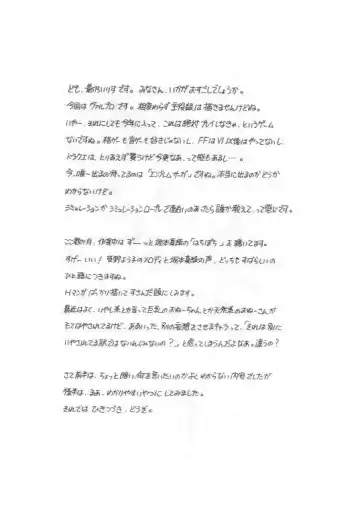 ども、最為いりすです。みなさん、いかがおすごしでしょうか。
今回はヴァルプロです。相変わらず全殺級は描きませんけどね。
いやー、それにしても今年に入って、これは絶対プレイしなきゃ、というゲーム
ないですね。格ゲーも音ゲーも好きじゃないし、FFはVI以後はやってないし、
ドラクエは、とりあえず買うけど今更なあ、って感もあるし…。
今、唯一出るの待ってるのは「エンブレムサーガ」ですね。本当に出るのかどうか
わからないけど。
シミュレーションかシミュレーションRPGで面白いのあったら誰か教えて、って感じです。
ここ数ヶ月、作業中はずーっと坂本真綾の「はちぽち」を聴いてます。
すげーいい!菅野よう子のメロディと坂本真綾の声、どっちもすばらしいの
ひと語につきますね。
Hマンガばっかり描いてすさんだ頭にしみます。
最近はよく、いやし系とか言って巨乳のおねーちゃんとか天然系のおねーさんが
もてはやされてるけど、ああいった、別の妄想をさせるキャラって、「それは別に
いやされてる訳ではないんじゃないの?」と思ってしまうんだよなあ。違うの?
さて前半は、ちょっと僕は何を言いたいのかよくわからない内容でしたが
後半は、まあ、わかりやすいやつにしてみました。
それではひきつづき、どうぞ。